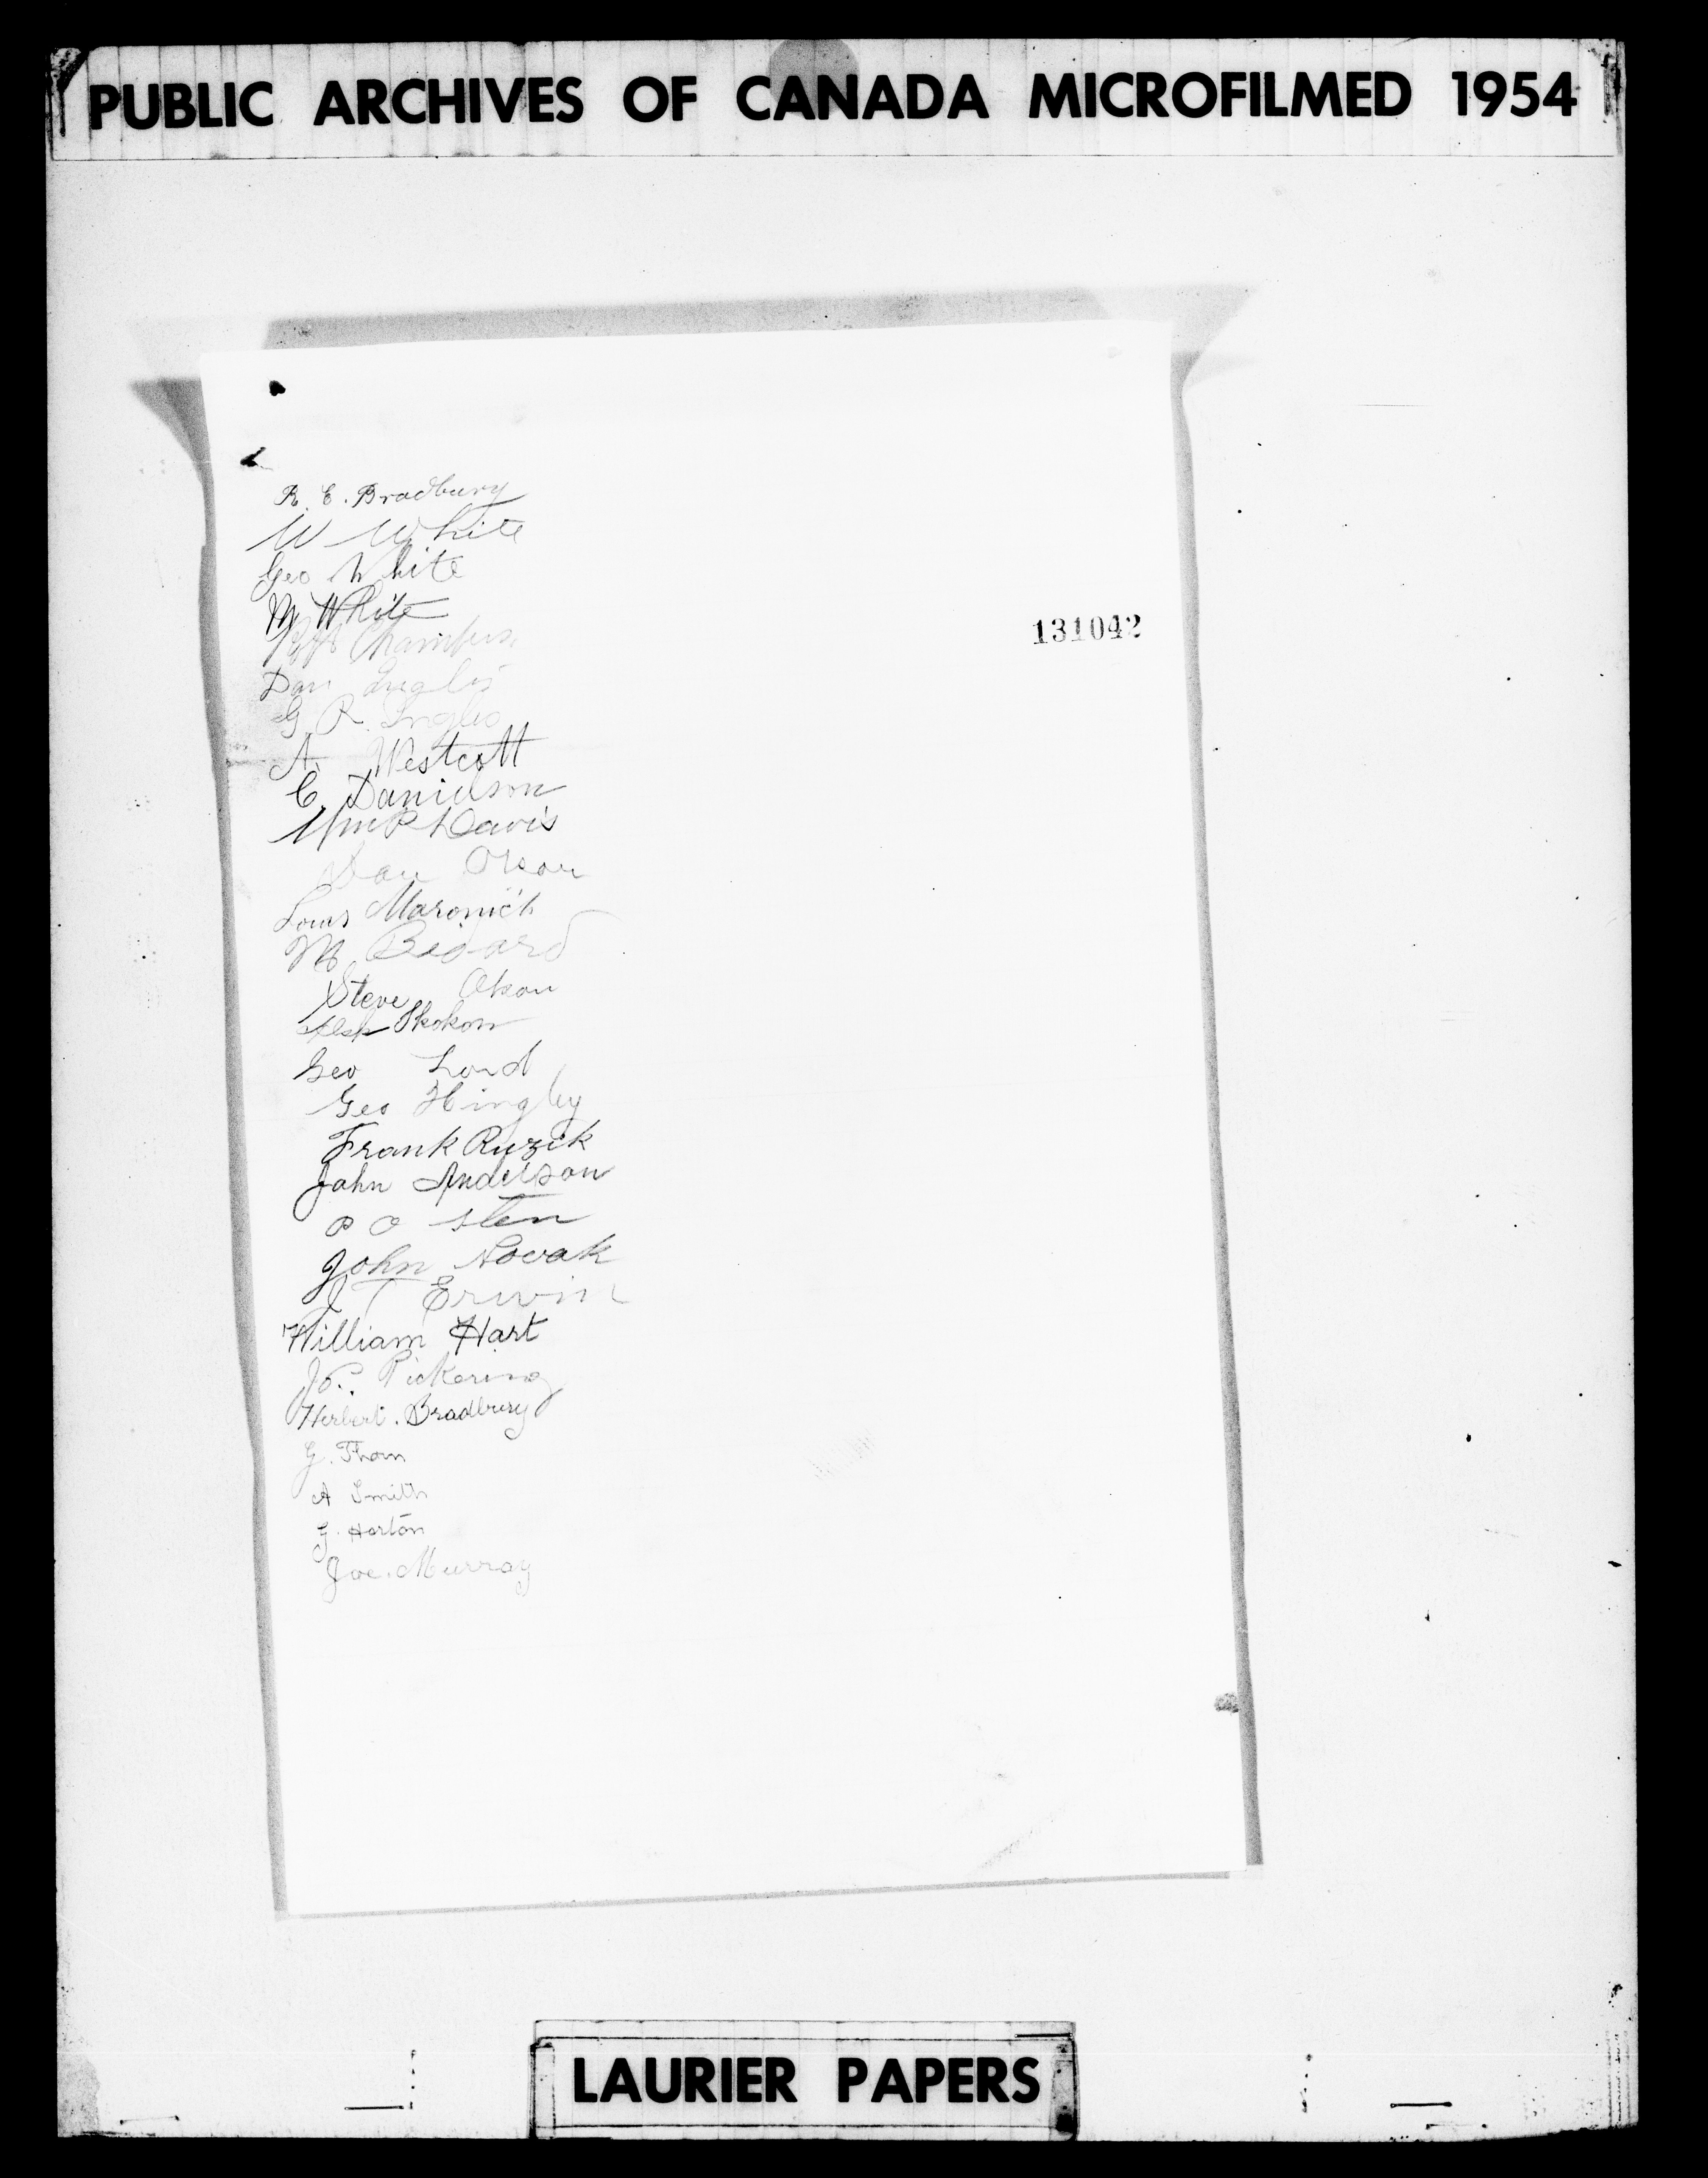 PUBLIC ARCHIVES OF CANADA MICROFILMED 1954
R. E. Bradbury
W White
Geo White
M White
131042
Chambers
Dan Inglis
G. R. Inglis
A. Westcott
C. Danielson
Wm P Davis
Dan Olson
Louis Maronich
M. Bedard
Steve Olson
Geo Lord
Geo Hingley
Frank Ruzick
John Anderson
P O Sten
John Novak
J T Erwin
William Hart
Jos. Pickering
Herbert. Bradbury
G. Thom
A Smith
G. Horton
Joe. Murray
LAURIER PAPERS